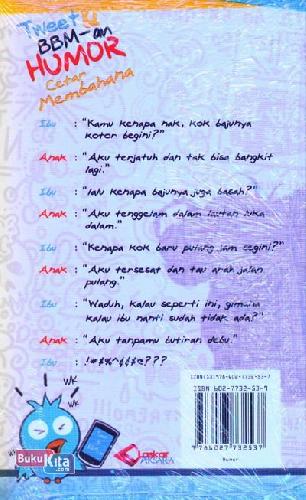 Tweet &
BBM-an
HUMOR
Cetar
Membahana
Ibu : "Kamu kenapa nak, kok bajunya
kotor begini?"
Anak : "Aku terjatuh dan tak bisa bangkit
lagi."
Ibu : "lalu kenapa bajunya juga basah?"
Anak : "Aku tenggelam dalam lautan luka
dalam."
Ibu : "Kenapa kok baru pulang jam segini?"
Anak : "Aku tersesat dan tau arah jalan
pulang."
Ibu : "Waduh, kalau seperti ini, gimana
kalau ibu nanti sudah tidak ada?"
Anak : "Aku tanpamu butiran debu."
Ibu :
WK
WK
ISBN 602-7732-53-9
9 786027 732537
Humor
BukuKita.com